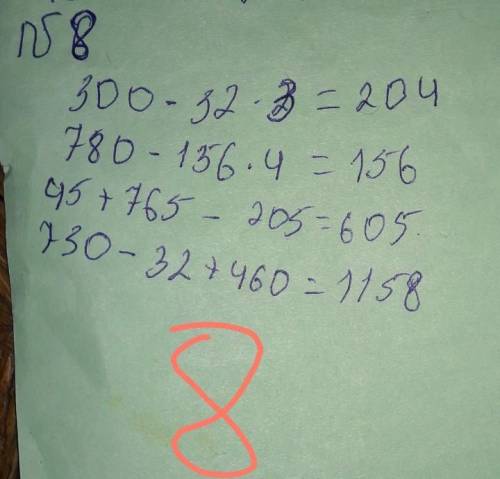 № 8
300 - 32 · 3 = 204
780 - 156 · 4 = 156
45 + 765 - 205 = 605.
730 - 32 + 460 = 1158
8